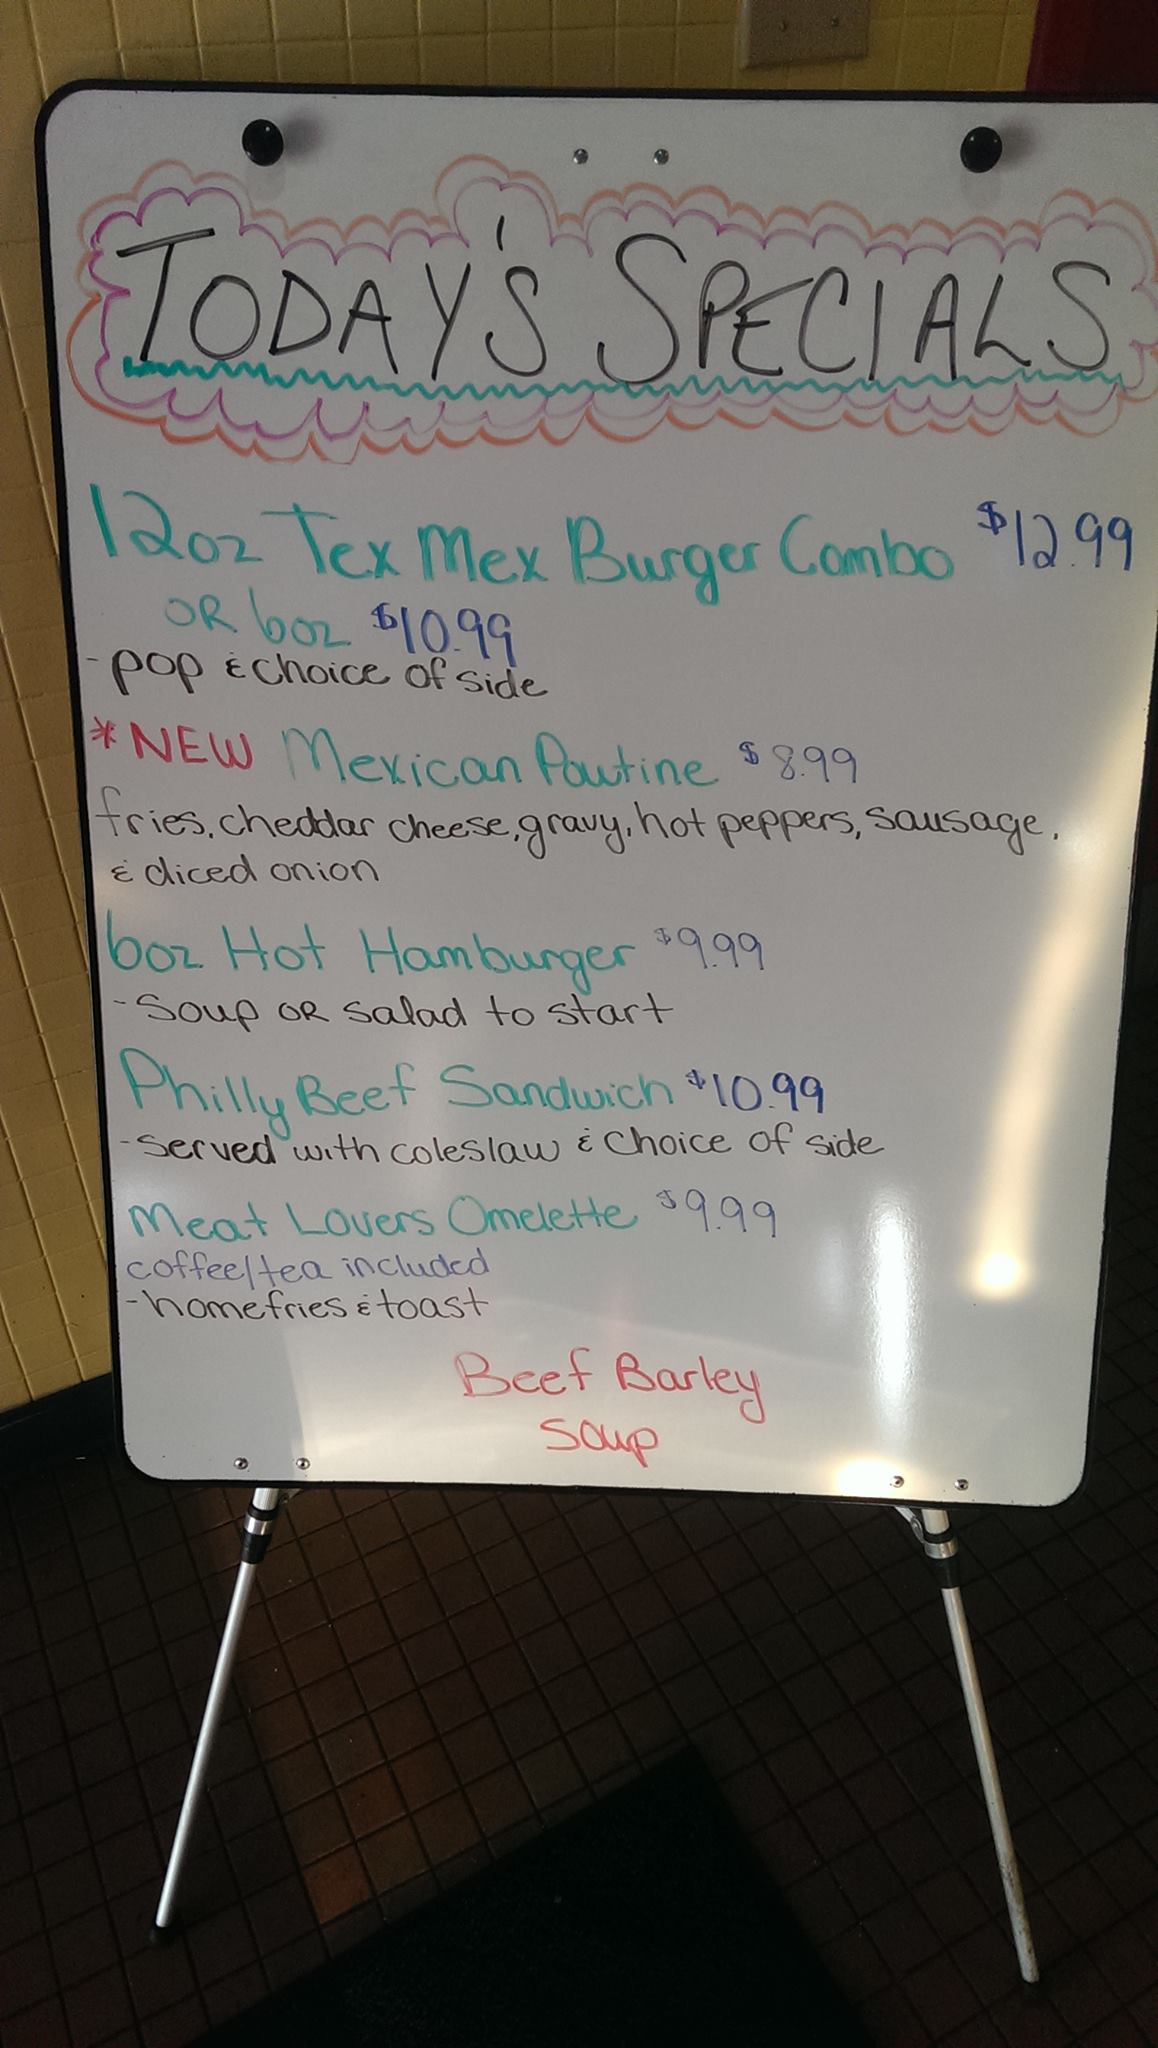 TODAY'S SPECIALS
12oz Tex Mex Burger Combo $12.99
OR 6oz $10.99
- pop & choice of side
*NEW Mexican Poutine $8.99
fries, cheddar cheese, gravy, hot peppers, sausage,
& diced onion
6oz Hot Hamburger $9.99
- Soup OR salad to start
Philly Beef Sandwich $10.99
- served with coleslaw & choice of side
Meat Lovers Omelette $9.99
coffee/tea included
- homefries & toast
Beef Barley
Soup